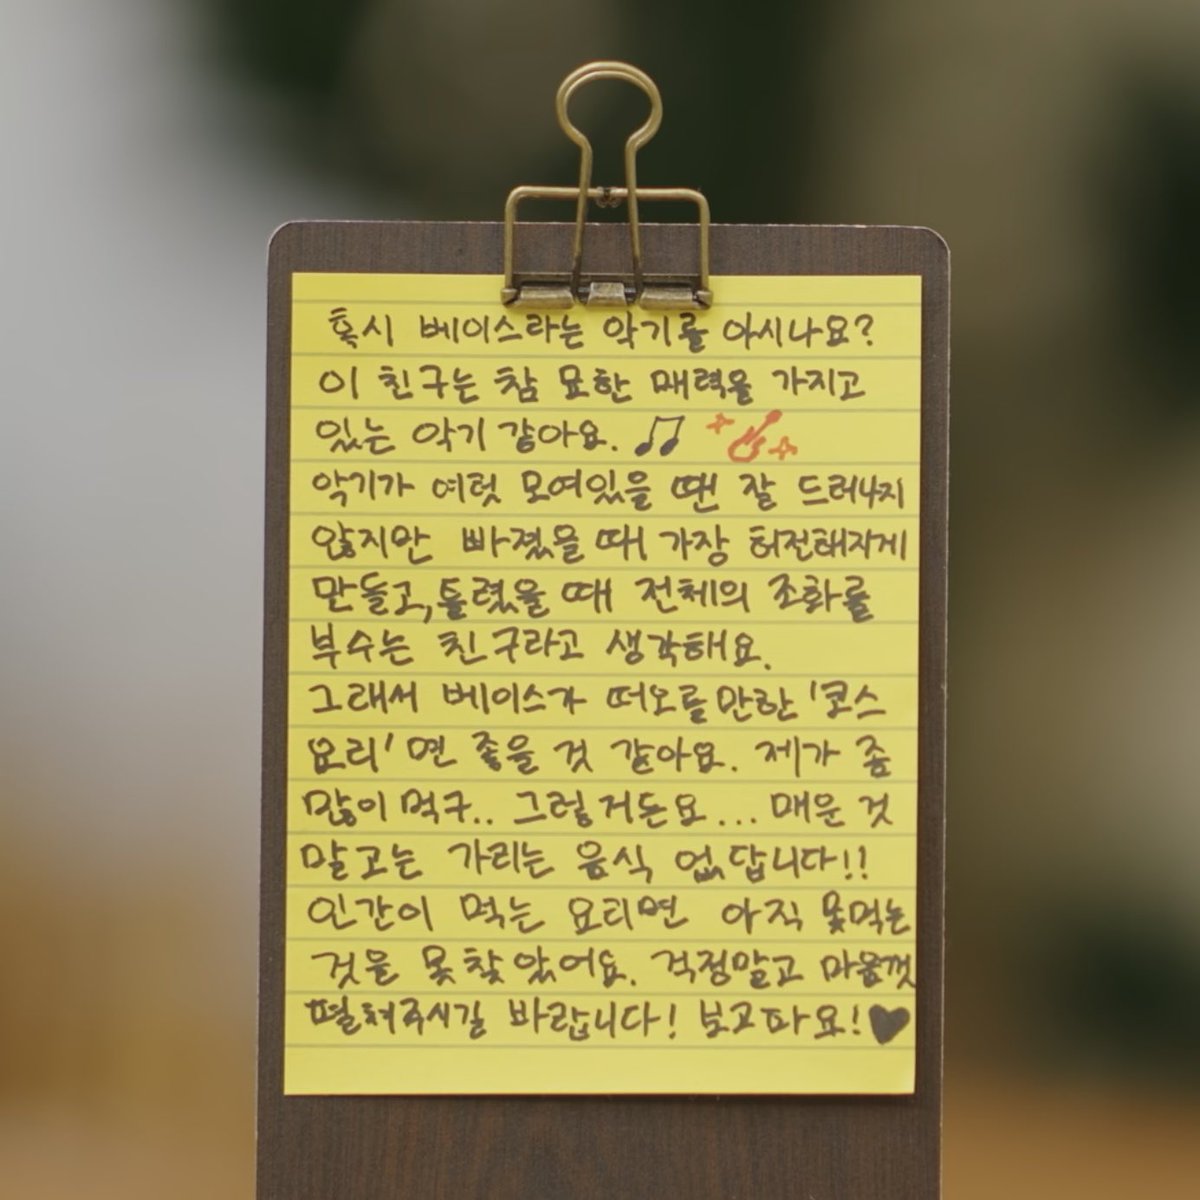 혹시 베이스라는 악기를 아시나요?
이 친구는 참 묘한 매력을 가지고
있는 악기 같아요.
악기가 여럿 모여있을 땐 잘 드러나지
않지만 빠졌을 때 가장 허전해지게
만들고, 틀렸을 때 전체의 조화를
부수는 친구라고 생각해요.
그래서 베이스가 떠오를만한 '코스
요리' 면 좋을 것 같아요. 제가 좀
많이 먹구.. 그렇거든요... 매운 것
말고는 가리는 음식 없답니다!!
인간이 먹는 요리면 아직 못먹는
것을 못찾았어요. 걱정말고 마음껏
펼쳐주시길 바랍니다! 보고파요!